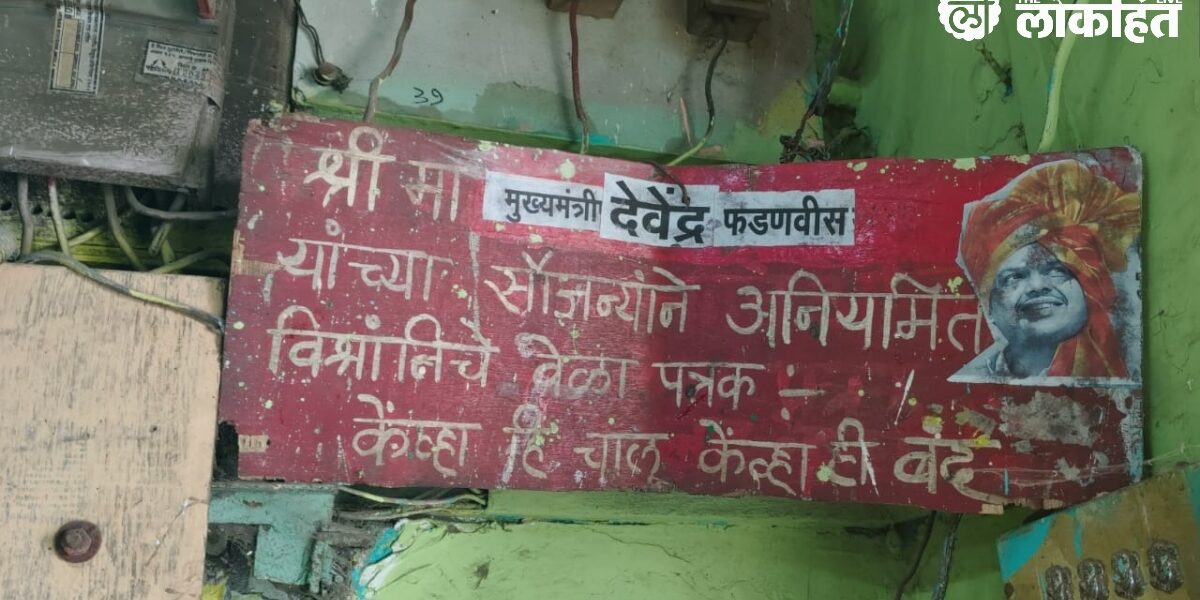 THE LIVE
लोकहित
39
श्री मा मुख्यमंत्री देवेंद्र फडणवीस
यांच्या सौजन्याने अनियामित
विश्रांतिचे वेळा पत्रक :-
केंव्हा हि चालू केंव्हा ही बंद